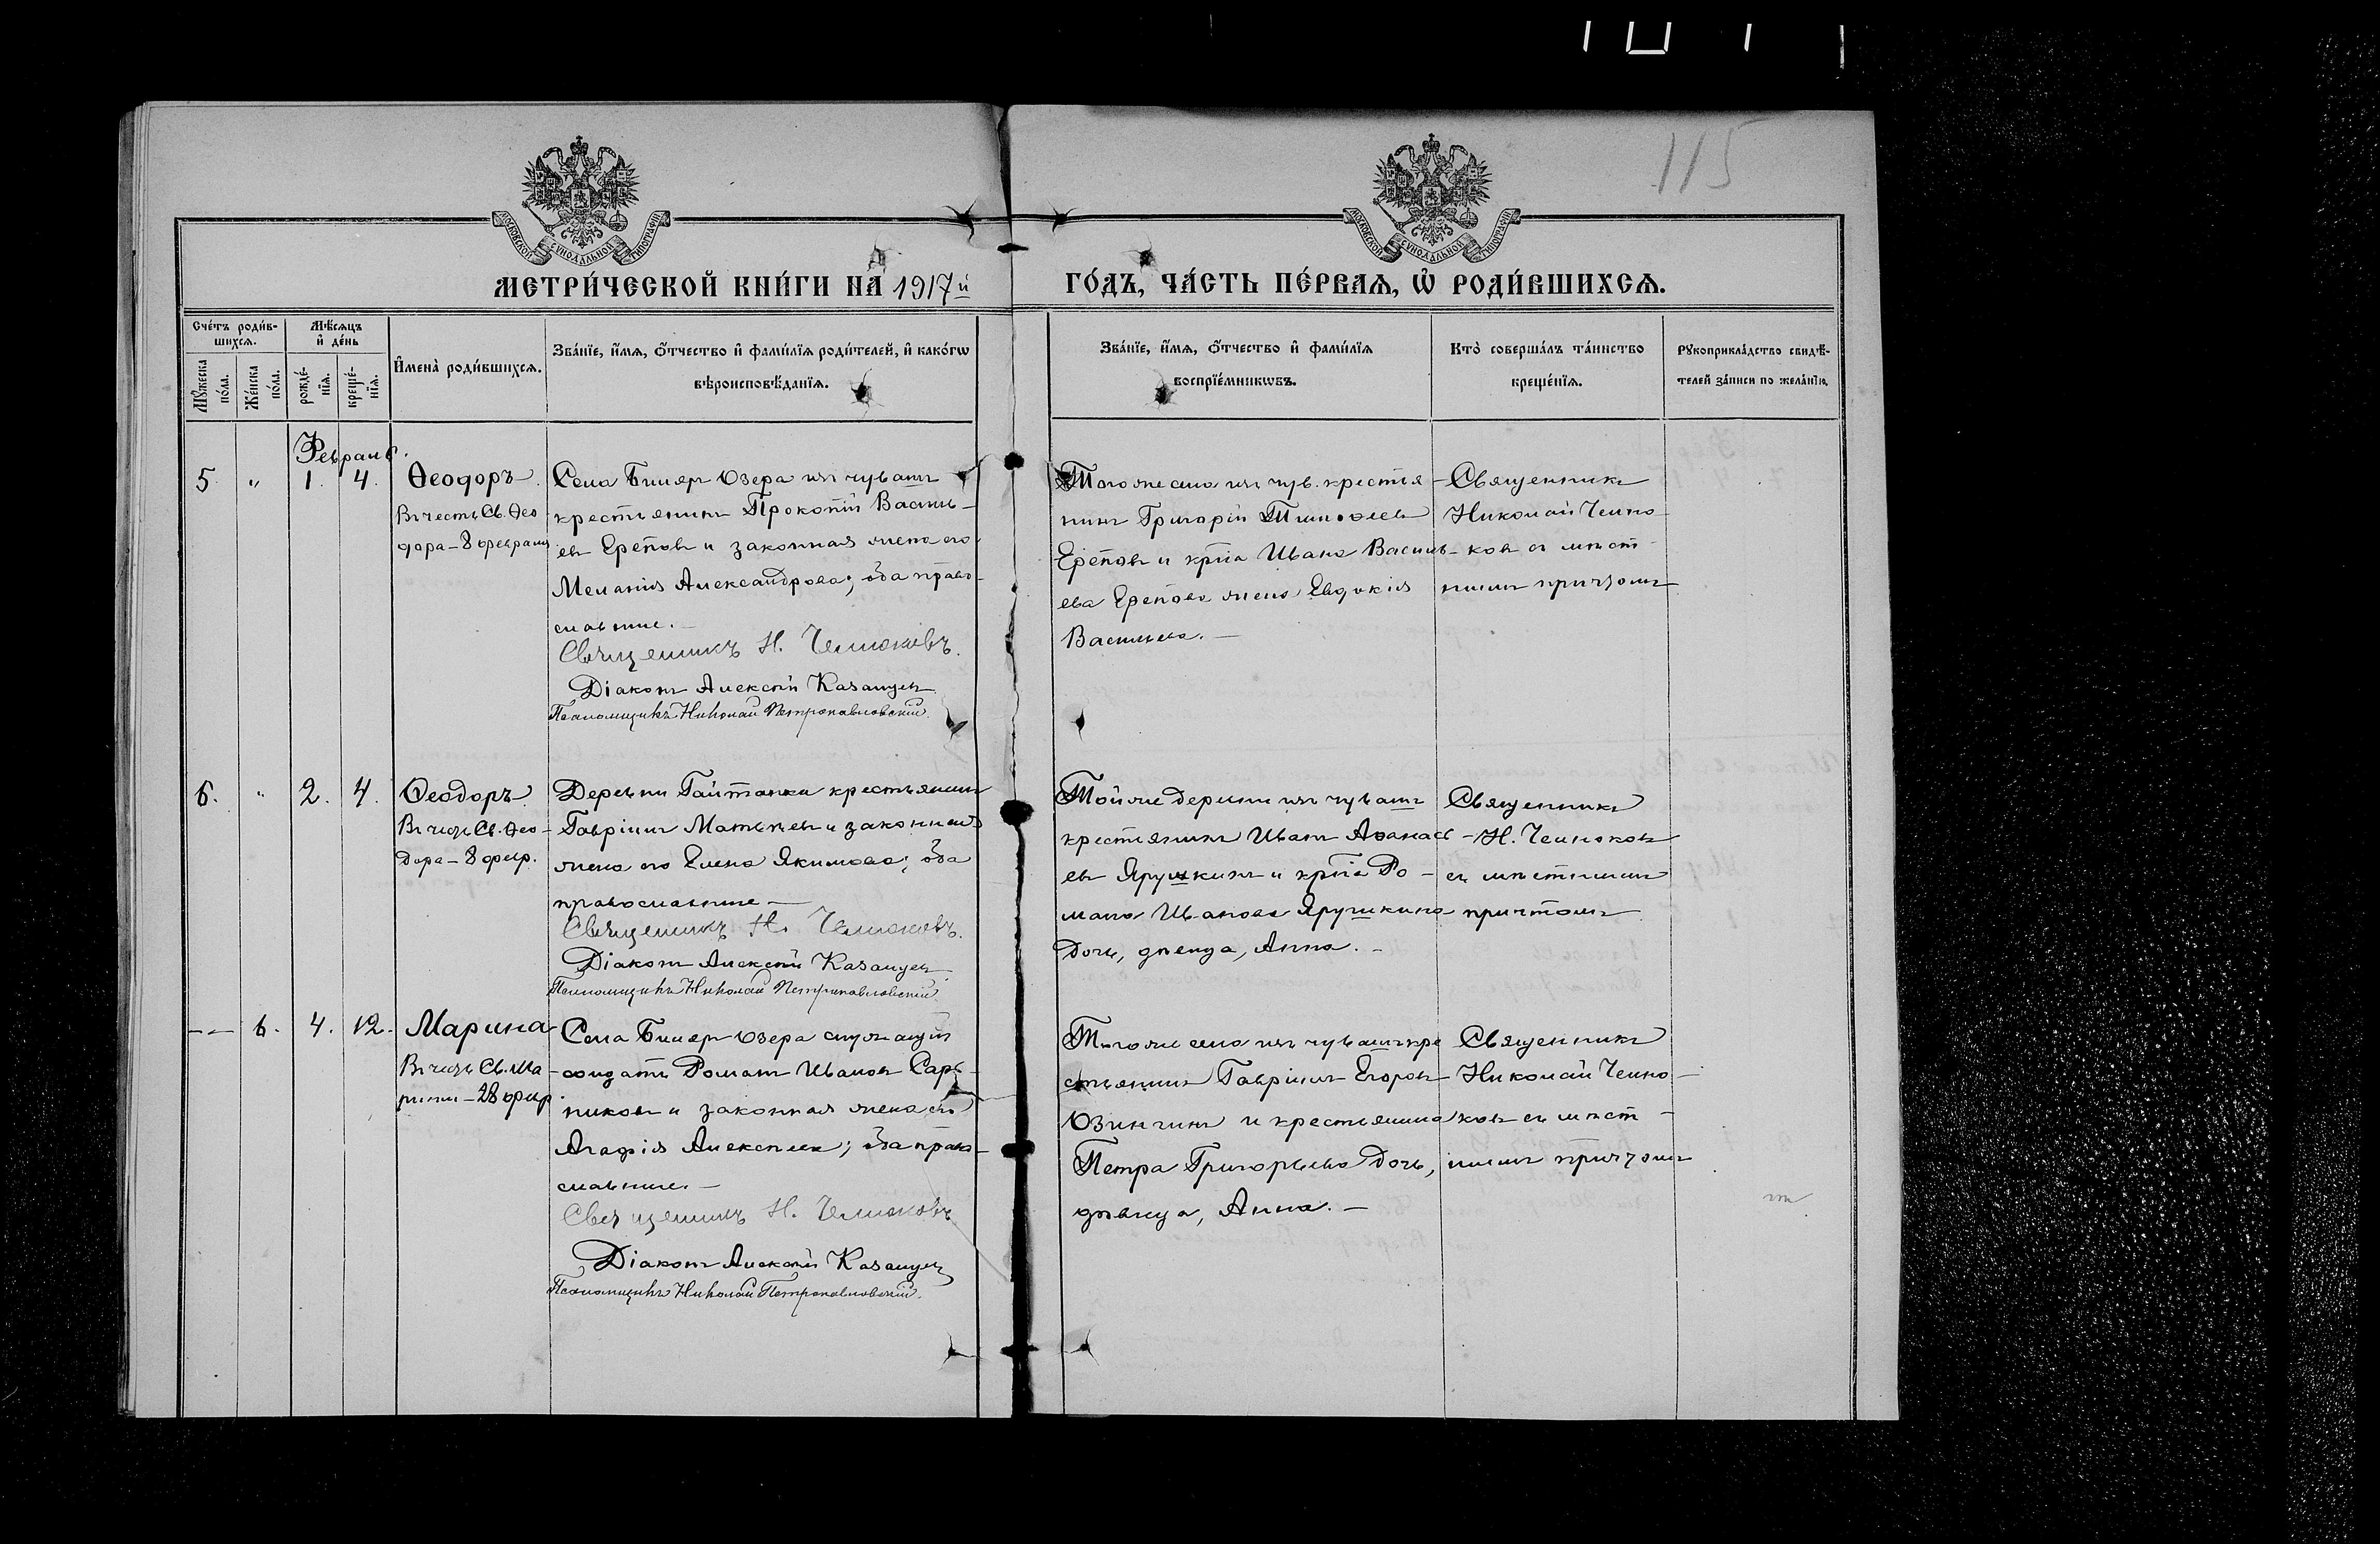 115
МОСКОВСКОЙ СѴНОДАЛЬНОЙ ТИПОГРАФІИ
МОСКОВСКОЙ СѴНОДАЛЬНОЙ ТИПОГРАФІИ
МЕТРИ́ЧЕСКОЙ КНИ́ГИ НА 1917й ГО́ДЪ, ЧА́СТЬ ПЕ́РВАѦ, Ѡ҆ РОДИ́ВШИХСѦ.
Сче́тъ роди́в-
шихсѧ.
Мꙋ́жеска по́ла.
Же́нска по́ла.
Мѣ́сѧцъ и҆ де́нь
рожде́-
нїѧ.
креще́-
нїѧ.
И҆мена̀ роди́вшихсѧ.
Зва́нїе, и҆́мѧ, ѻ҆́тчество и҆ фами́лїѧ роди́телей, и҆ како́гѡ
вѣроисповѣ́данїѧ.
Зва́нїе, и҆́мѧ, ѻ҆́тчество и҆ фами́лїѧ
воспрїе́мникѡвъ.
Кто̀ соверша́лъ та́инство
креще́нїѧ.
Рꙋкоприкла́дство свидѣ́-
телей за́писи по жела́нїю.
Февраль.
5. " 1. 4. Ѳеодоръ.
Въ честь Св. Ѳео
дора – 8 февраля
Села Биляр Озера изъ чувашъ
крестьянинъ Прокопій Василь-
евъ Ереповъ и законная жена его
Меланія Александрова; оба право-
славные.–
Священникъ Н. Чемоковъ.
Діаконъ Алексѣй Казанцевъ
Псаломщикъ Николай Петропавловскій.
Того же села изъ чув. крестья-
нинъ Григорій Тимоѳеевъ
Ереповъ и кр-на Ивана Василь-
ева Ерепова жена Евдокія
Васильева.–
Священникъ
Николай Чемо-
ковъ съ мѣст-
нымъ причтомъ
6. " 2. 4. Ѳеодоръ.
Въ честь Св. Ѳео-
дора – 8 февр.
Деревни Гайтанки крестьянинъ
Гавріилъ Матвѣевъ и законная
жена его Елена Якимова; оба
православные –
Священникъ Н. Чемоковъ.
Діаконъ Алексѣй Казанцевъ.
Псаломщикъ Николай Петропавловскій
Той же деревни изъ чувашъ
крестьянинъ Иванъ Аѳанась-
евъ Ярушкинъ и кр-на Ро-
мана Иванова Ярушкина
дочь, дѣвица, Анна.–
Священникъ
Н. Чемоковъ
съ мѣстнымъ
причтомъ
– – 6. 4. 12. Марина
Въ честь Св. Ма-
рины – 28 февр.
Села Биляр Озера служащій
солдатъ Романъ Ивановъ
законная жена его
Агафія Алексѣева; оба право-
славные.–
Священникъ Н. Чемоковъ
Діаконъ Алексѣй Казанцевъ
Псаломщикъ Николай Петропавловскій.
Того же села изъ чувашъ кре
стьянинъ Гавріилъ Егоровъ
и крестьянина
Петра Григорьева дочь,
дѣвица, Анна.–
Священникъ
Николай Чемо-
ковъ съ мѣст-
нымъ причтомъ